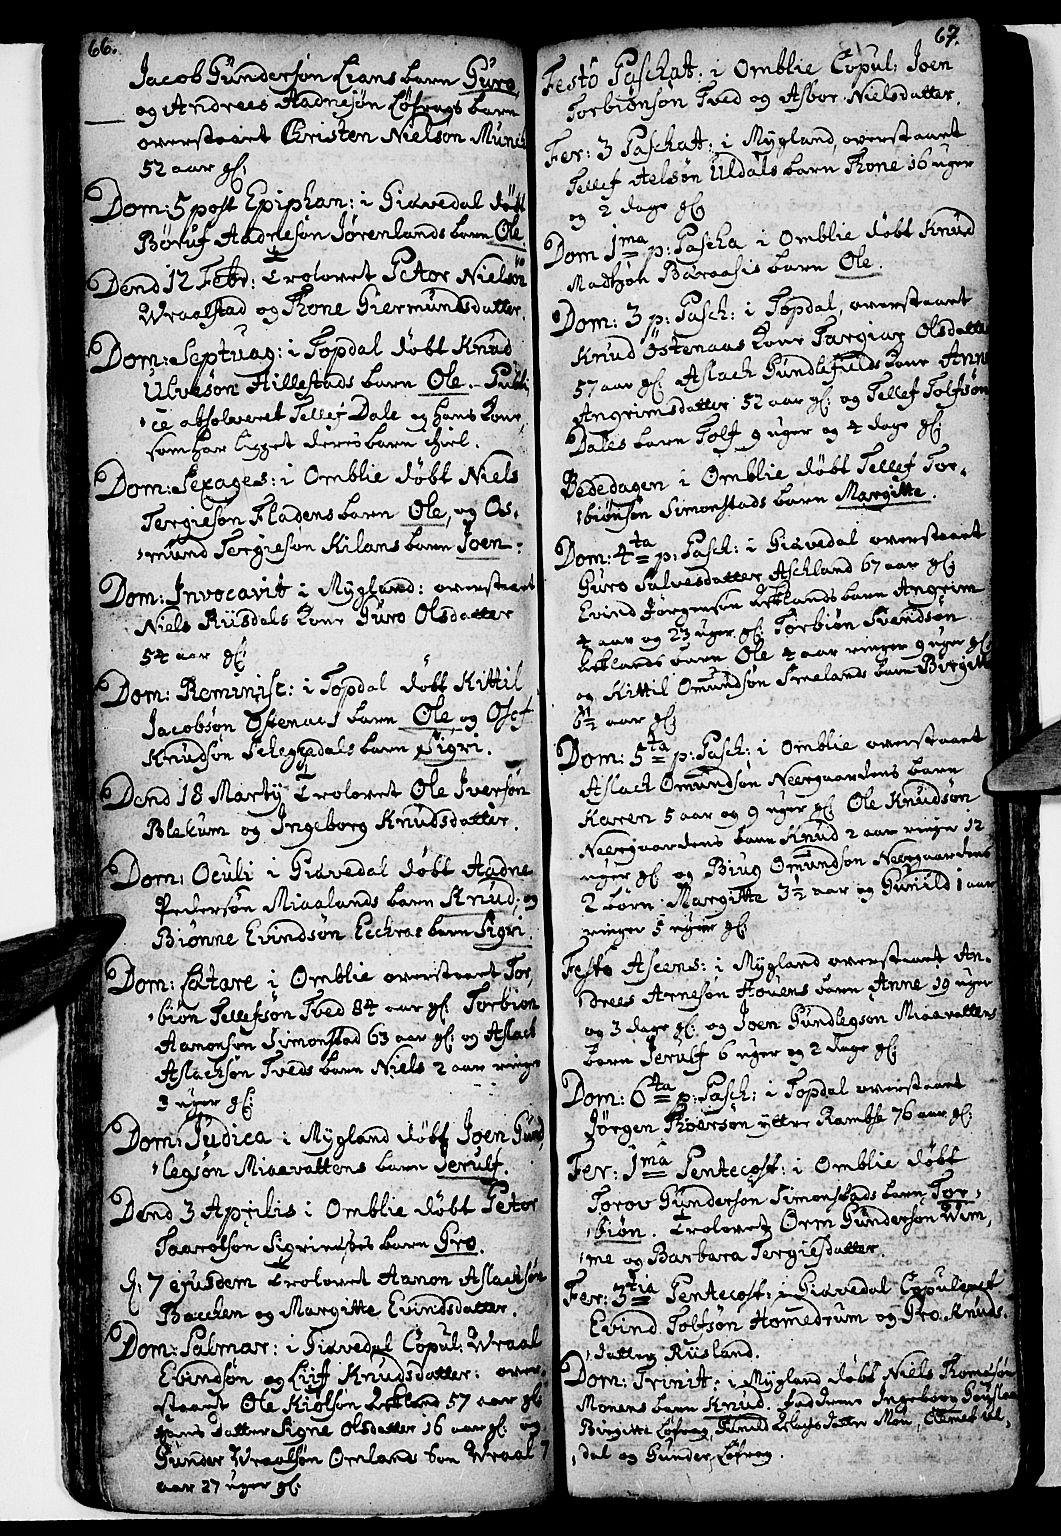 66.
Jacob Gundersøn Lians barn Guro,
og Andrees Aadnesøn Løfrags barn
overstaaet Christen Nielson Munch
52 aar gl:
Dom: 5 post Epiphan: i Giævedal døbt
Børuf Aadnesøn Jørenlands barn Ole
Dend 12 Febr: Trolovet Peter Nielsøn
Wraalstad og Thone Giermundsdatter.
Dom: Septuag: i Topdal døbt Knud
Ulvesøn Hillestads barn Ole. Publi,
,ce absolveret Tellef Dale og hans Kone
som har ligget deris barn ihiel.
Dom: Sexages: i Omblie døbt Niels
Tergiesøn Fladens barn Ole, og Os-
,mund Tergiesøn Kilans barn Joen.
Dom: Invocavit i Mÿgland: overstaaet
Niels Riisdals Kone Guro Olsdatter
54 aar gl:
Dom: Reminisc: i Topdal døbt Kittil
Jacobsøn Østenaas barn Ole og Osof
Knudsøn Selegrædals barn Sigri.
Dend 18 Martÿ Trolovet Ole Iversøn
Blekum og Ingeborg Knudsdatter.
Dom: Oculi i Giævedal døbt Aadne
Pedersøn Miaalands barn Knud, og
Biønne Evindsøn Eechraas barn Sigri
Dom: Lætare i Omblie overstaaet Tor,
,biøn Tellefsøn Tved 84 aar gl: Torbiøn
Aamonsøn Simonstad 63 aar gl: og Aslack
Aslachsøn Tveds barn Niels 2 aar ringe
3 uger gl:
Dom: Judica i Mÿgland døbt Joen Gund,
,legsøn Miaavattens barn Jerulf.
Dend 3 Aprilis i Omblie døbt Peter
Taarolsøn Sigrinæses barn Gro.
d: 7 ejusdem Trolovet Aanon Aslachsøn
Bacchen og Margitte Evindsdatter.
Dom: Palmar: i Giævedal Copul: Wraal
Evindsøn og Liif Knudsdatter: over,
staaet Ole Kiølsøn Lekland 57 aar gl:
hans datter Signe Olsdatter 16 aar gl: og
Gunder Wraalsøn Ørnlands søn Wraal 7
aar 27 uger gl:
67.
Festo Paschat: i Omblie Copul: Joen
Torbiønsøn Tved og Asbor Nielsdatter.
Fer: 3 Paschat: i Mÿgland, overstaaet
Tellef Aelsøn Uldals barn Thone 16 uger
og 2 dage gl:
Dom 1ma p: Pascha i Omblie døbt Knud
Madtsøn Baraasis barn Ole.
Dom: 3 p: Pasch: i Topdal, overstaaet
Knud Østenaas Kone Targiær Olsdatter
57 aar gl: Aslach Gundlefields Kone Anne
Angrimsdatter 52 aar gl: og Tellef Tolfsøn
Dales barn Tolf 9 uger og 4 dage gl:
Bededagen i Omblie døbt Tellef Tor-
,biønsøn Simonstads barn Margitte.
Dom: 4ta p: Pasch: i Giævedal overstaaet
Guro Salvesdatter Aschland 67 aar gl:
Evind Jørgensøn Lecklands barn Angrim
4 aar og 23 uger gl: Torbiøn Svendsøn
Lecklands barn Ole 4 aar ringer 9 uger gl:
og Kittil Omundsøn Smelands barn Birgitte
6½ aar gl:
Dom: 5ta p: Pasch: i Omblie overstaaet
Aslach Omundsøn Neergaardens barn
Karen 5 aar og 9 uger gl: Ole Knudsøn
Neergaardens barn Knud 2 aar ringe 12
uger gl: og Biug Omundsøn Neergaardens
2 børn: Margitte 3½ aar og Gunild 1 aar
ringer 5 uger gl:
Festo Ascens: i Mÿgland overstaaet An-
,drees Arnesøn Hovens barn Anne 19 uger
og 3 dage gl: og Joen Gundlegsøn Miaavattens
barn Jerulf 6 uger og 2 dage gl:
Dom: 6ta p: Pasch: i Topdal overstaaet
Jørgen Thoersøn ÿttre Ramse 76 aar gl:
Fer: 1ma Pentecost: i Omblie døbt
Torov Gundersøn Simonstads barn Tor-
,biøn. Trolovet Orm Gundersøn Wim,
,me og Barbara Tergiesdatter.
Fer: 3tia Pentecost: i Giævedal Copuleret
Evind Tolfsøn Homedrum og Gro Knuds-
,datter Riisland.
Dom: Trinit: i Mÿgland døbt Niels Thomesøn
Monens barn Knud. Faddrene Ingebor
Birgitte Løfrag, Gunild Moen, Ul,
,dal og Gunder Løfrag.